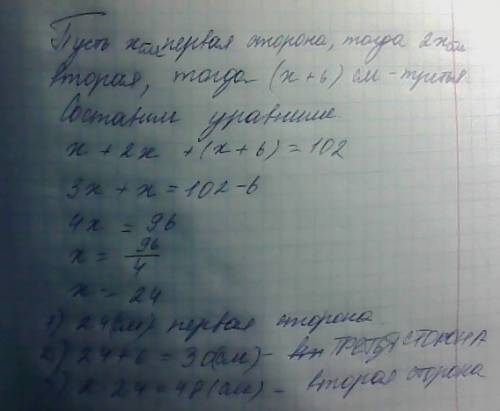 Пусть x см первая сторона, тогда 2x см
вторая, тогда (x+6) см - третья
Составим уравнение
x + 2x + (x+6) = 102
3x + x = 102-6
4x = 96
x = 96/4
x = 24
1) 24(см) первая сторона
2) 24+6=30(см)- ТРЕТЬЯ СТОРОНА
3) 2·24=48(см) - вторая сторона